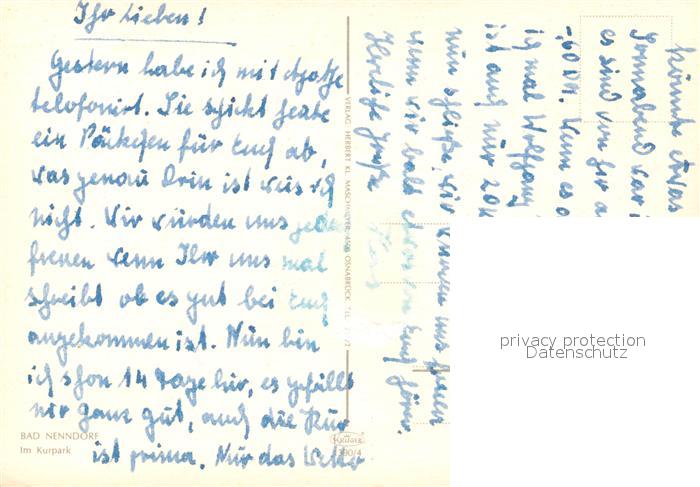 Ihr Lieben!
Gestern habe ich mit
telofonirt. Sie schickt heute
ein Päckchen für Euch ab,
was genau Drin ist weis ich
nicht. Wir würden uns jeden
freuen wenn Ihr uns mal
schreibt ob es gut bei Euch
angekommen ist. Nun bin
ich schon 14 Tage hir, es gefällt
mir ganz gut, auch die Kur
ist prima. Nur das Wetter
könnte etwas
Sonnabend war
es sind von hir a
-,60 DM. Wenn es
ich mal Wolfgang
ist auch nur 20
nun schließe, wir würden uns freuen
wenn wir bald etwas von Euch hören.
Herzliche Grüße
VERLAG HERBERT KL. MASCHMEYER, 4500 OSNABRÜCK, TEL.
BAD NENNDORF
Im Kurpark
Krüger
1390/4
privacy protection
Datenschutz